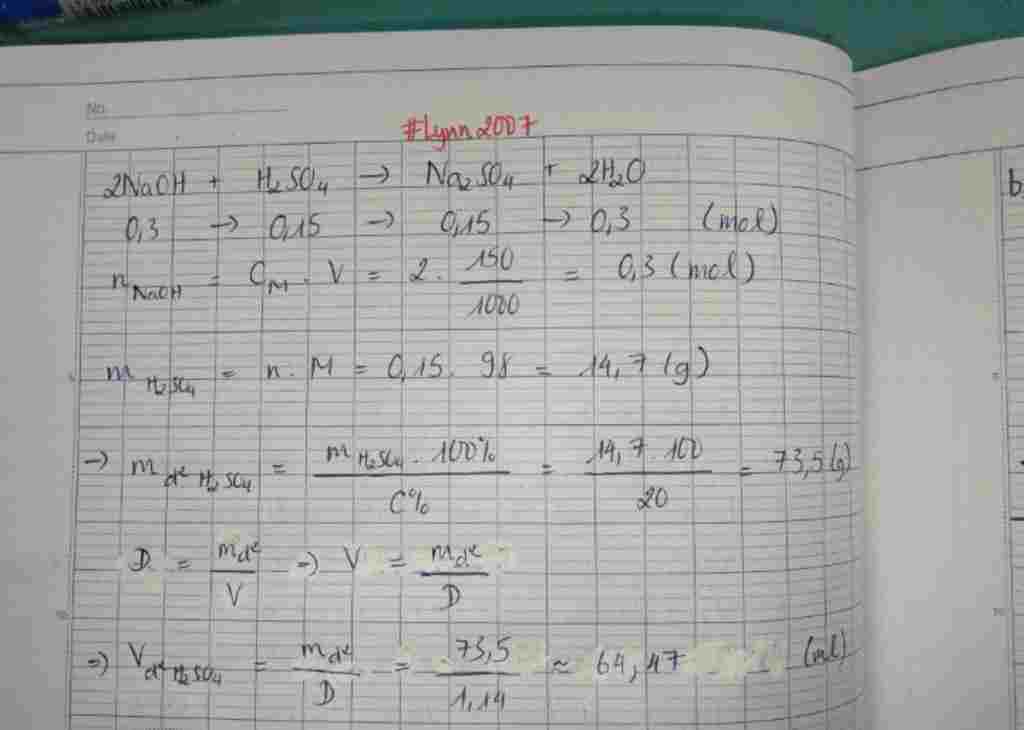 No.
Date
#Lynn2007
2NaOH + H₂SO₄ → Na₂SO₄ + 2H₂O
0,3 → 0,15 → 0,15 → 0,3 (mol)
n NaOH = C_M . V = 2 . 150/1000 = 0,3 (mol)
m H₂SO₄ = n . M = 0,15 . 98 = 14,7 (g)
→ m d² H₂SO₄ = m H₂SO₄ . 100% / C% = 14,7 . 100 / 20 = 73,5 (g)
D = m d² / V => V = m d² / D
=> V d² H₂SO₄ = m d² / D = 73,5 / 1,14 ≈ 64,47 (ml)
b